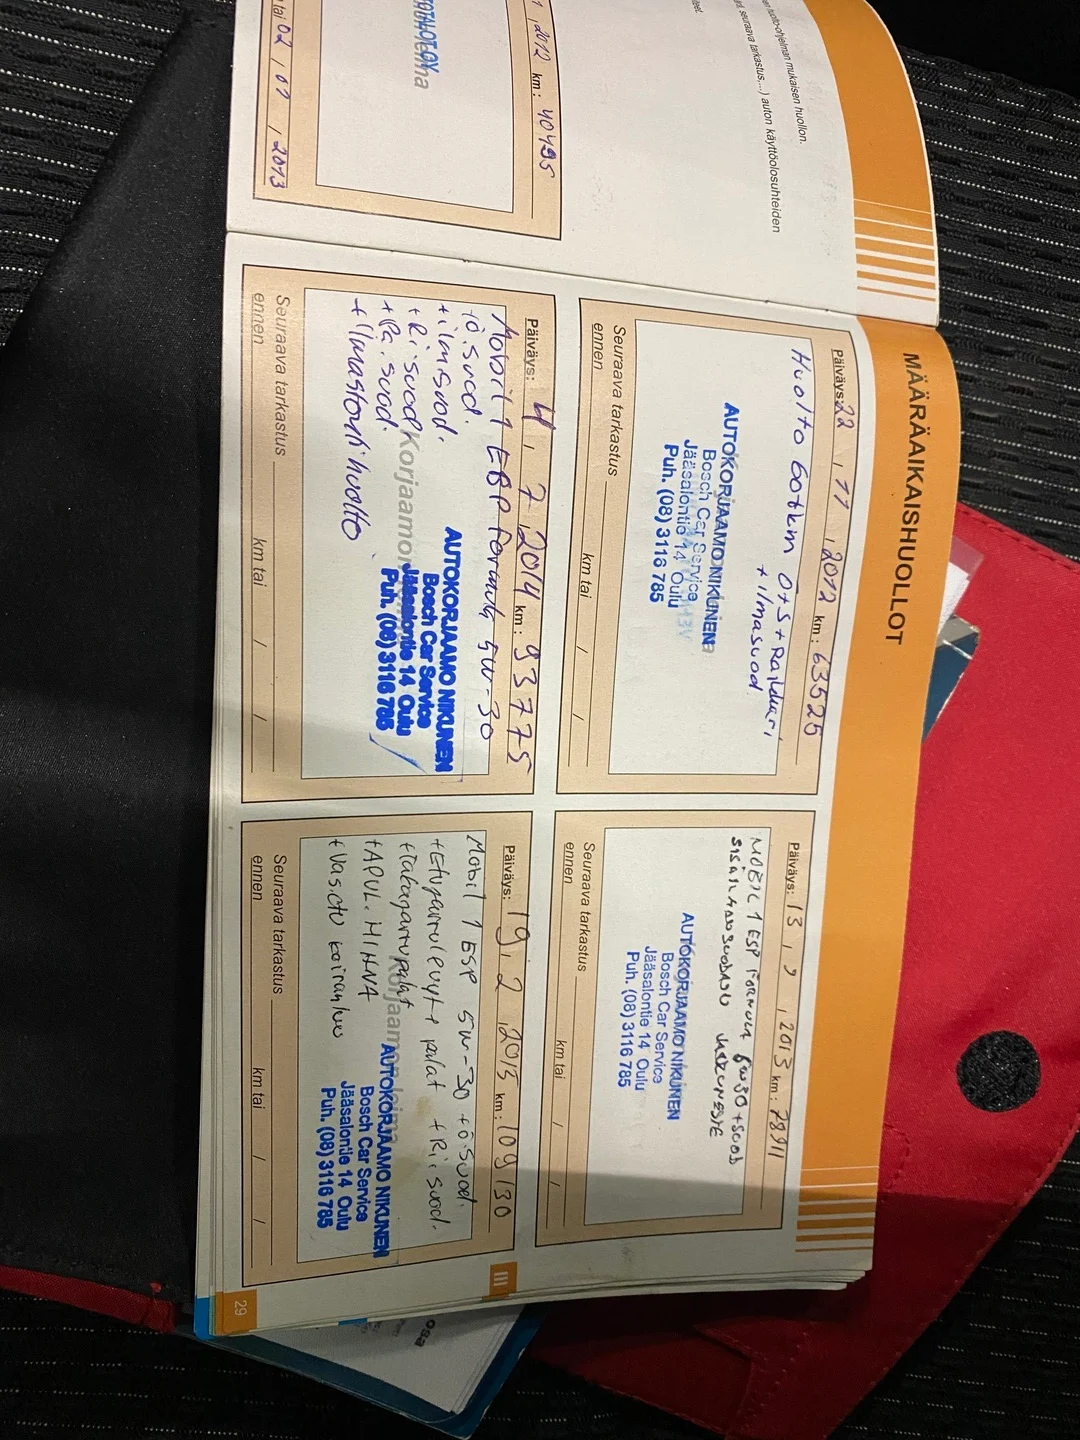 en huolto-ohjelman mukaisen huollon.
seuraava tarkastus,...) auton käyttöolosuhteiden
2012 km: 40495
tai 02 / 07 / 2013
MÄÄRÄAIKAISHUOLLOT
Päiväys: 22 / 11 / 2012 km: 63525
Huolto 60tkm Ö+S+Raikkari
+ilmasuod
AUTOKORJAAMO NIKUNEN
Bosch Car Service
Jääsalontie 14 Oulu
Puh. (08) 3116 785
Seuraava tarkastus
ennen km tai / /
Päiväys: 13 / 9 / 2013 km: 78911
MOBIL 1 ESP FORMULA 5W30 + SUOD
AUTOKORJAAMO NIKUNEN
Bosch Car Service
Jääsalontie 14 Oulu
Puh. (08) 3116 785
Seuraava tarkastus
ennen km tai / /
Päiväys: 4 / 7 / 2014 km: 93775
Mobil 1 ESP formula 5W-30
+ö.suod.
+ilmsuod.
+Ri suod
+Pa. suod.
+Ilmastointihuolto
Korjaamon
AUTOKORJAAMO NIKUNEN
Bosch Car Service
Jääsalontie 14 Oulu
Puh. (08) 3116 785
Seuraava tarkastus
ennen km tai / /
Päiväys: 19 / 2 / 2015 km: 109130
Mobil 1 ESP 5W-30 +ö.suod.
+Etujarrulevyt+palat +Ri.suod.
+Takajarrupalat
+APUL.HIHNA
Korjaamon leima
AUTOKORJAAMO NIKUNEN
Bosch Car Service
Jääsalontie 14 Oulu
Puh. (08) 3116 785
Seuraava tarkastus
ennen km tai / /
III
29
osa